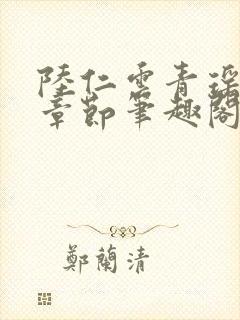 陸仁雲青瑤
章節筆趣閣
鄭蘭清